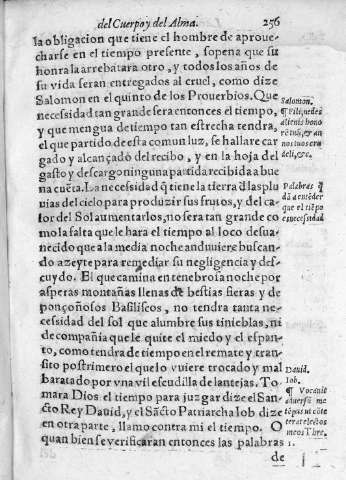 del Cuerpo y del Alma. 256
la obligacion que tiene el hombre de aproue-
charse en el tiempo presente, sopena que su
honra la arrebatara otro, y todos los años de
su vida seran entregados al cruel, como dize
Salomon en el quinto de los Prouerbios. Que
necessidad tan grande sera entonces el tiempo,
y que mengua de tiempo tan estrecha tendra,
el que partido de esta comun luz, se hallare car
gado y alcançado del recibo, y en la hoja del
gasto y descargo ninguna partida recibida a bue
na cuēta. La necessidad q̃ tiene la tierra d̃ las plu
uias del cielo para produzir sus frutos, y del ca-
lor del Sol aumentarlos, no sera tan grande co
mo la falta que le hara el tiempo al loco desua-
necido que a la media noche anduuiere buscan-
do azeyte para remediar su negligencia y des-
cuydo. El que camina en tenebrosa noche por
asperas montañas llenas de bestias fieras y de
ponçoñosos Basiliscos, no tendra tanta ne-
cessidad del sol que alumbre sus tinieblas, ni
de compañia que le quite el miedo y el espan-
to, como tendra de tiempo en el remate y tran-
sito postrimero el que lo vuiere trocado y mal
baratado por vna vil escudilla de lantejas. To
mara Dios el tiempo para juzgar dize el San-
cto Rey Dauid, y el Sācto Patriarcha Iob dize
en otra parte, llamo contra mi el tiempo. O
quan bien se verificaran entonces las palabras
de
Salomon.
¶ Fili, ne des
alienis hono
rē tuū, & an
nos tuos cru
deli, &c.
Palabras q̃
dā a entēder
que el tiēpo
es necessidad
Dauid.
Iob.
¶ Vocauit
aduersū me
tēpus ut cōte
terat electos
meos Thre.
1.